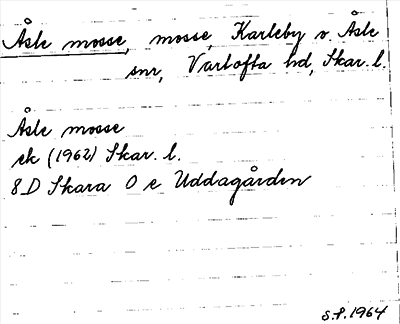 Åsle mosse, mosse, Karleby o. Åsle
snr, Vartofta hd, Skar. l.
Åsle mosse
ek (1962) Skar. l.
8D Skara O e Uddagården
S.F. 1964